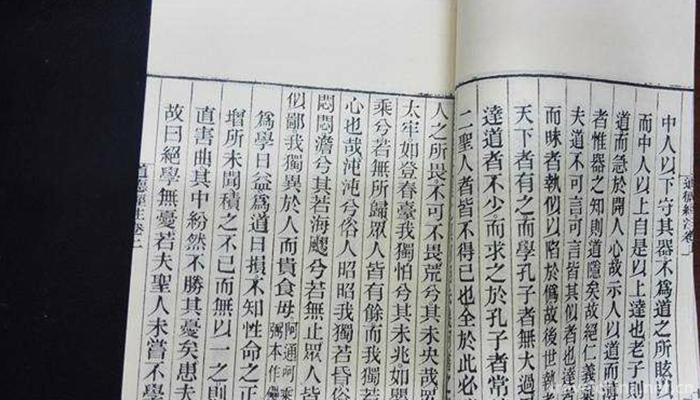 中人以下守其器不為道之所眩以
而中人以上自是以上達也老子則
道而急於開人心故示人以道而薄
者惟器之知則道隱矣故絕仁義棄
夫道不可言可言皆其似者也達者
而昧者執似以陷於偽故後世執
天下者有之而學孔子者無大過
達道者不少而求之於孔子者常
二聖人者皆不得已也全於此必
人之所畏不可不畏荒兮其未央哉眾
太牢如登春臺我獨怕兮其未兆如嬰
乘兮若無所歸眾人皆有餘而我獨若
心也哉沌沌兮俗人昭昭我獨若昏俗
悶悶澹兮其若海飂兮若無止眾人皆
似鄙我獨異於人而貴食母 阿通呵乘
弼本作儽
為學日益為道日損不知性命之正
增所未聞積之不已而無以一之則
直害曲其中紛然不勝其憂矣患夫
故曰絕學無憂若夫聖人未嘗不學
道德經注卷二